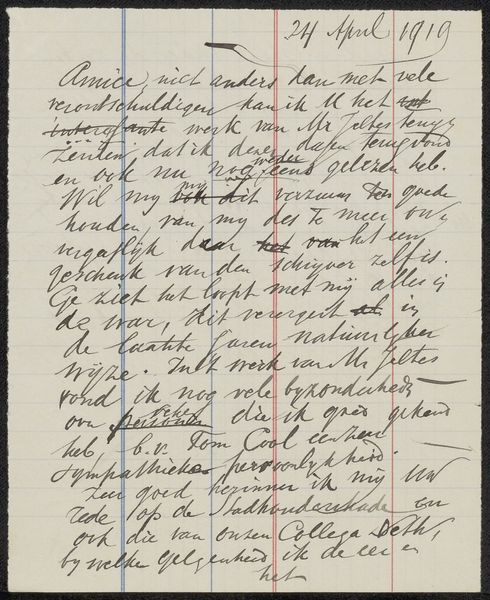 24 April 1919
Amice, niet anders dan met vele
verontschuldigen kan ik U het
werk van Mr Jeltes terug
zenden dat ik dezer dagen terugvond
en ook nu nog weder eens gelezen heb.
Wil my dit verzuim ten goede
houden, van my des te meer onver
geeflyk daar het een
geschenk van den schryver zelf is.
Ge ziet het loopt met mij alles in
de war, dit verergert in
de laatste Jaren natuurlyker
wyze. In't werk van Mr Jeltes
vond ik nog vele byzonderheden
over die ik goed gekend
heb, b.v. Tom Cool een zeer
sympathieke persoonlykheid.
Zeer goed herinner ik mij Uw
rede op de Stadhouderskade en
ook die van onzen Collega
by welke gelegenheid ik de eer
het